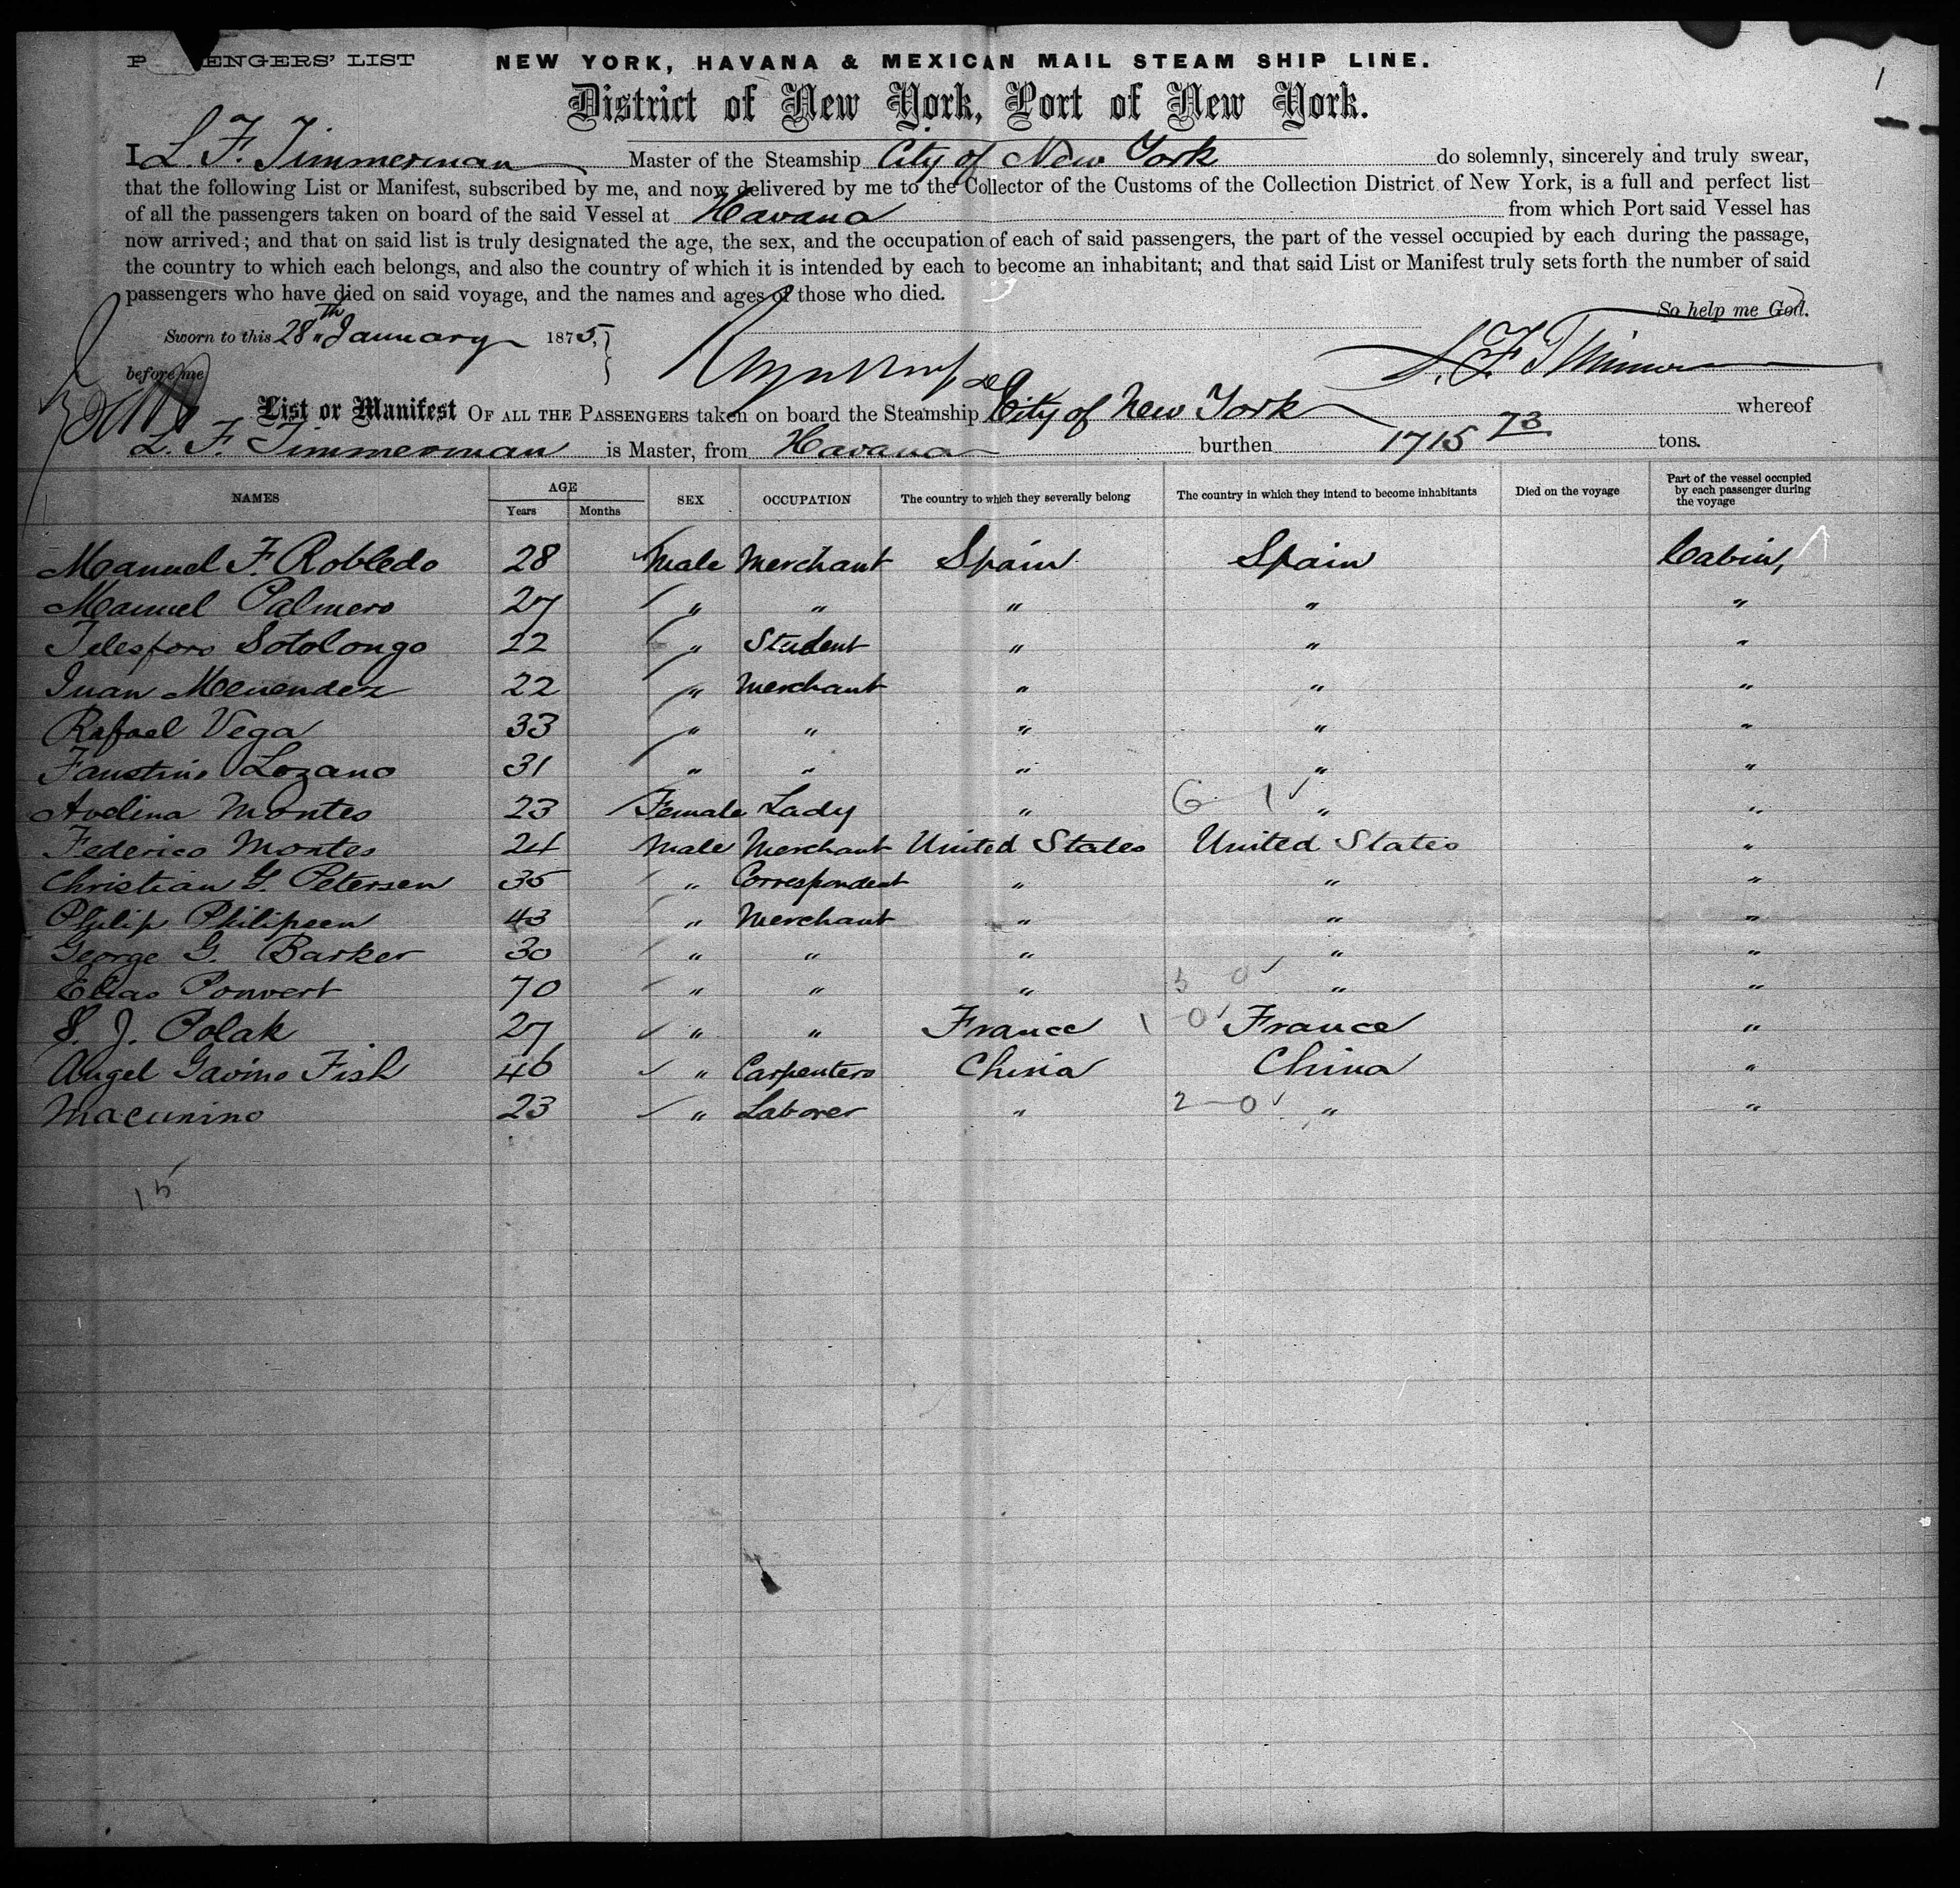 PASSENGERS' LIST NEW YORK, HAVANA & MEXICAN MAIL STEAM SHIP LINE. 1
District of New York, Port of New York.
I L. F. Timmerman Master of the Steamship City of New York do solemnly, sincerely and truly swear,
that the following List or Manifest, subscribed by me, and now delivered by me to the Collector of the Customs of the Collection District of New York, is a full and perfect list
of all the passengers taken on board of the said Vessel at Havana from which Port said Vessel has
now arrived; and that on said list is truly designated the age, the sex, and the occupation of each of said passengers, the part of the vessel occupied by each during the passage,
the country to which each belongs, and also the country of which it is intended by each to become an inhabitant; and that said List or Manifest truly sets forth the number of said
passengers who have died on said voyage, and the names and ages of those who died.
So help me God.
Sworn to this 28th January 1875,
before me
List or Manifest OF ALL THE PASSENGERS taken on board the Steamship City of New York whereof
L. F. Timmerman is Master, from Havana burthen 1715 73 tons.
NAMES AGE Years Months SEX OCCUPATION The country to which they severally belong The country in which they intend to become inhabitants Died on the voyage Part of the vessel occupied by each passenger during the voyage
Manuel F. Robledo 28 Male Merchant Spain Spain Cabin,
Manuel Palmero 27 " " " " "
Telesforo Sotolongo 22 " Student " " "
Juan Menendez 22 " Merchant " " "
Rafael Vega 33 " " " " "
Faustino Lozano 31 " " " " "
Avelina Montes 23 Female Lady " 6 1 " "
Federico Montes 24 Male Merchant United States United States "
Christian G. Petersen 35 " Correspondent " " "
Philip Philipsen 43 " Merchant " " "
George G. Barker 30 " " " " "
Elias Ponvert 70 " " " 5 0 " "
S. J. Polak 27 " " France 1 0 France "
Angel Gavino Fish 46 " Carpenters China China "
Macunino 23 " Laborer " 2 - 0 " "
15